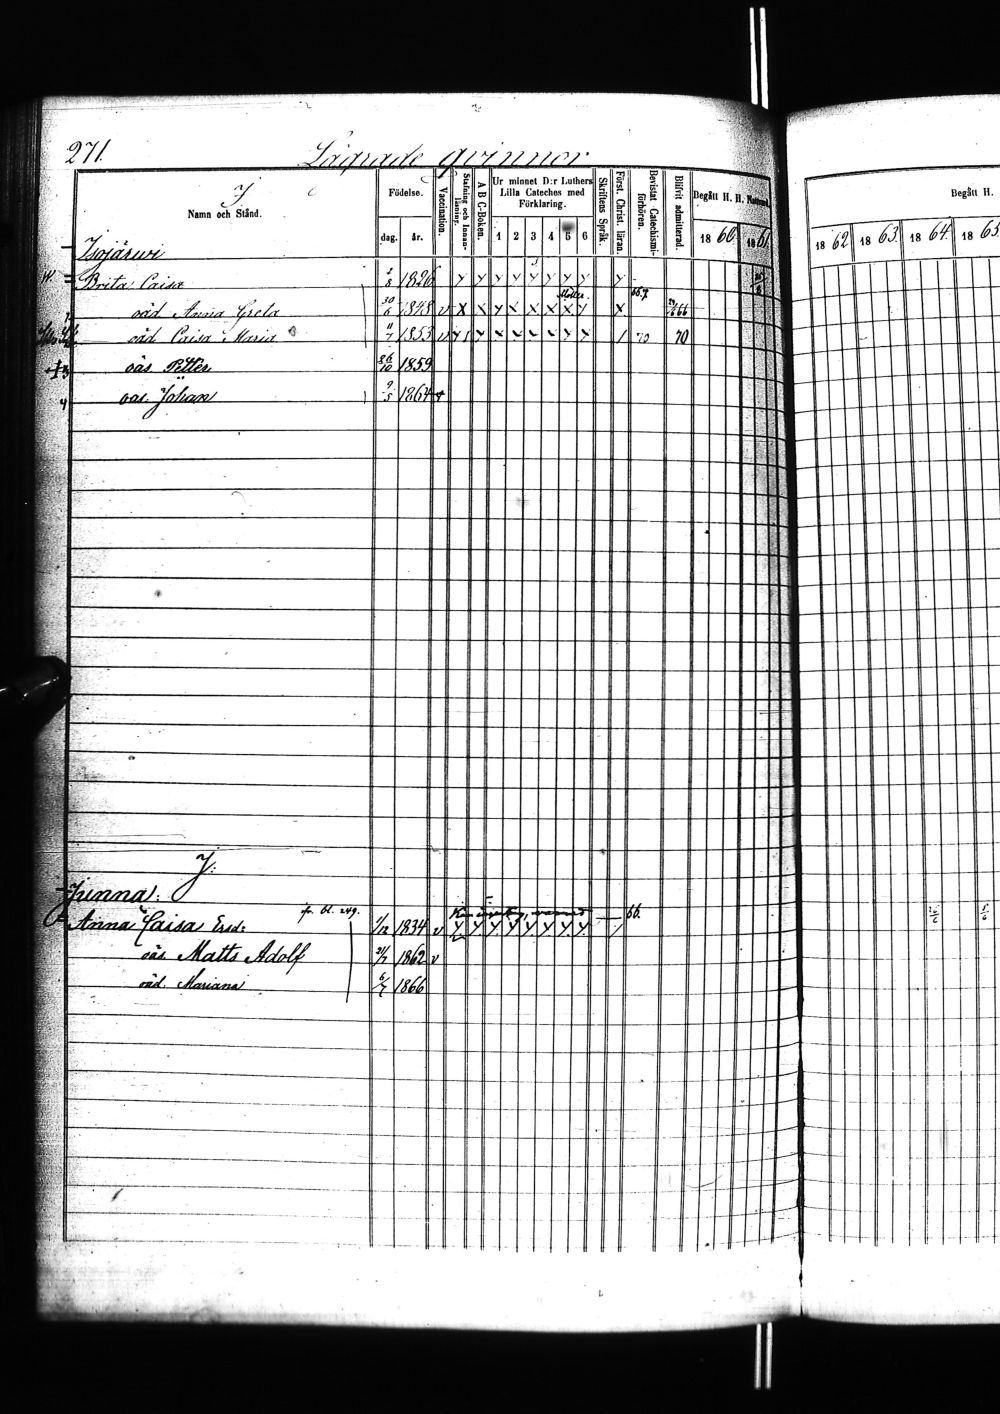 271.
Lägrade qvinnor
I
Namn och Stånd.
Födelse.
dag. år.
Vaccination.
Stafning och Innan-läsning.
A B C-Boken.
Ur minnet D:r Luthers Lilla Cateches med Förklaring.
1 2 3 4 5 6
Skriftens Språk.
Först. Christ. läran.
Bevistat Catechismi-förhören.
Blifvit admitterad.
Begått H. H. Nattvard
18 60. 18 61.
Begått H.
18 62 18 63. 18 64. 18 65
Isojärwi
Brita Caisa 2/8 1826
oäd. Anna Greta 30/6 1848 v
oäd. Caisa Maria 11/7 1853 v 70 70
oäs. Petter 26/10 1859
oäs. Johan 9/5 1864
J:
Junna:
fr. bl. 249. 66.
Anna Caisa Ersd: 1/12 1834 v
oäs. Matts Adolf 21/7 1862 v
oäd. Mariana 6/7 1866